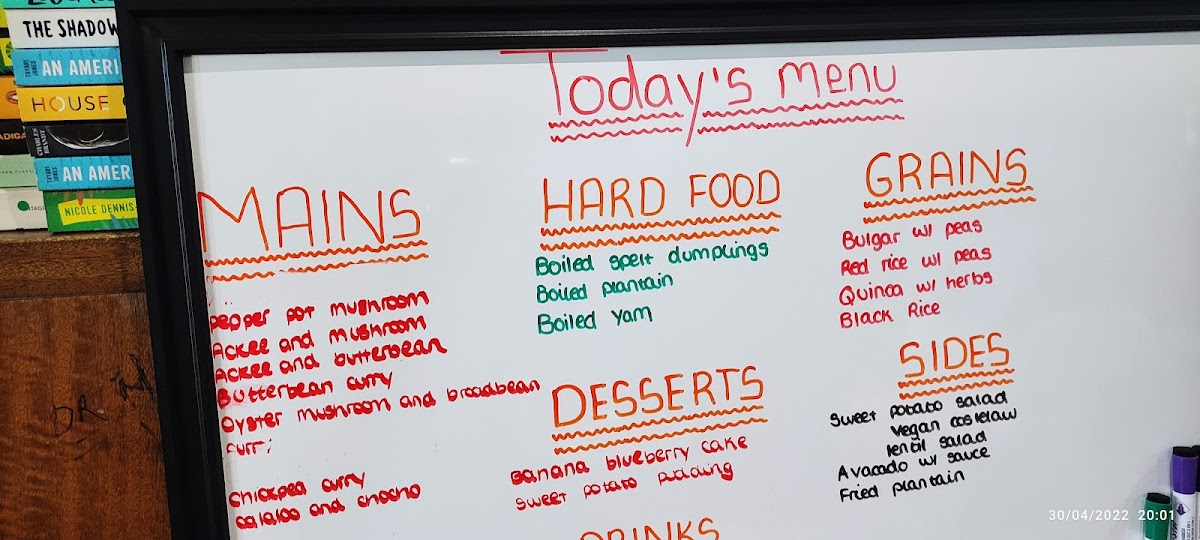 THE SHADOW
AN AMERI
HOUSE
CHARLES BRANDT
AN AMER
NICOLE DENNIS-
Today's Menu
MAINS
Pepper pot mushroom
Ackee and mushroom
Ackee and butterbean
Butterbean curry
Oyster mushroom and broadbean
Chickpea curry
calaloo and chocho
HARD FOOD
Boiled spelt dumplings
Boiled plantain
Boiled Yam
DESSERTS
Banana blueberry cake
Sweet potato pudding
DRINKS
GRAINS
Bulgar w/ peas
Red rice w/ peas
Quinoa w/ herbs
Black Rice
SIDES
Sweet potato salad
Vegan coslelaw
lentil salad
Avacado w/ sauce
Fried plantain
DR
30/04/2022 20:01